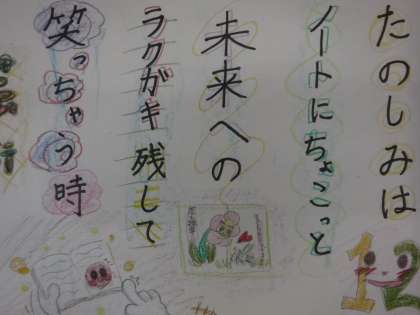 たのしみは
ノートにちょこっと
未来への
ラクガキ残して
笑っちゃう時
12